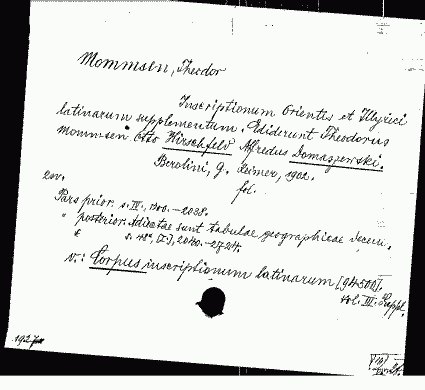 Mommsen, Theodor
Inscriptionum Orientis et Illyrici
latinarum supplementum. Ediderunt Theodorus
Mommsen Otto Hirschfeld Alfredus Domaszewski.
Berolini, G. Reimer, 1902.
2 ov. fol.
Pars prior. s. IV, 1200.-2038.
" posterior. Adiectae sunt tabulae geographicae
s. 2040.-2724.
v.: Corpus inscriptionum latinarum [94500].
vol. III. Suppl.